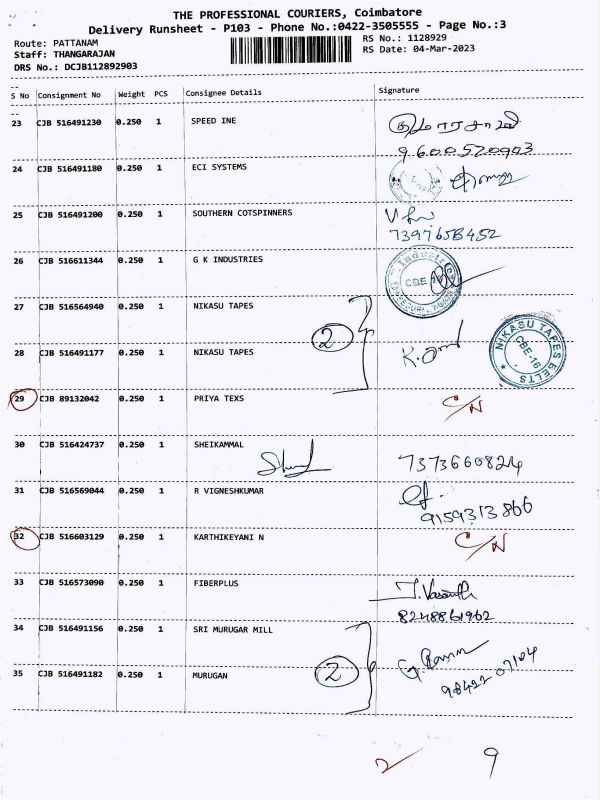 THE PROFESSIONAL COURIERS, Coimbatore
Delivery Runsheet - P103 - Phone No.:0422-3505555 - Page No.:3
Route: PATTANAM RS No.: 1128929
Staff: THANGARAJAN RS Date: 04-Mar-2023
DRS No.: DCJB112892903
S No Consignment No Weight PCS Consignee Details Signature
23 CJB 516491230 0.250 1 SPEED INE குமாரசாமி
9600520903
24 CJB 516491180 0.250 1 ECI SYSTEMS
25 CJB 516491200 0.250 1 SOUTHERN COTSPINNERS
7397658452
26 CJB 516611344 0.250 1 G K INDUSTRIES
27 CJB 516564940 0.250 1 NIKASU TAPES
2
28 CJB 516491177 0.250 1 NIKASU TAPES
NIKASU TAPES BELTS CBE-16
29 CJB 89132042 0.250 1 PRIYA TEXS C/N
30 CJB 516424737 0.250 1 SHEIKAMMAL
7373660824
31 CJB 516569044 0.250 1 R VIGNESHKUMAR
9159313866
32 CJB 516603129 0.250 1 KARTHIKEYANI N C/N
33 CJB 516573090 0.250 1 FIBERPLUS J. Vasanth
8248861962
34 CJB 516491156 0.250 1 SRI MURUGAR MILL
2
35 CJB 516491182 0.250 1 MURUGAN 98422 07104
2 9